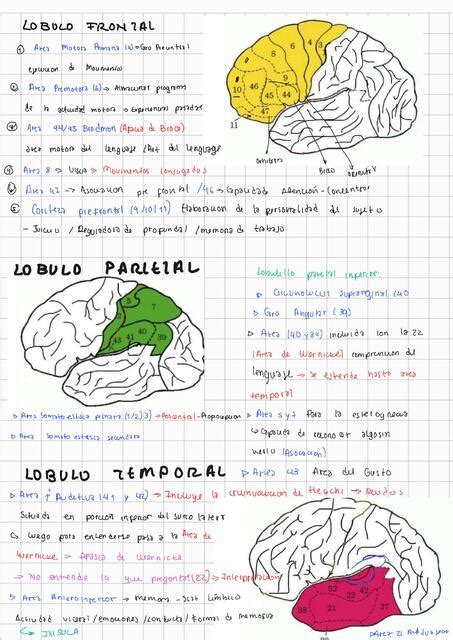 LOBULO FRONTAL
① Area Motora Primaria (4) → Giro Precentral
ejecucion de Movimiento
② Area Premotora (6) → Almacenar programas
de la actividad motora → Experiencias pasadas
③ Area 44/45 Brodman (Afasia de Broca)
area motora del lenguaje /Art del lenguaje
④ Area 8 → Movimentos conjugados
Area → Asociacion pre frontal /46 → Capacidad atención-Concentrar
Corteza prefrontal (9/10/11) Elaboracion de la personalidad del sujeto
- Juicio / Reguladora de profundad /memoria de trabajo
8 6 4 3
9
10 46 45 44
47
11
orbitaria Broca
LOBULO PARIETAL
5 7
2
40 39
43 41
Lobulillo parietal inferior:
Circunvolucion Supramarginal (40
Giro Angular (39)
Area (40 y 39) incluida con la 22
(Area de Wernicke) comprension del
lenguaje → Se extiende hasta area
temporal
Area somatoestesica primaria (1/2/3) → Poscentral-Propiocepcion
Area Somato estesica secundaria
Area 5 y 7 Para la estereognosia
↳ Capacidad de reconocer algo sin
verlo (Asociacion)
Area 43 Area del Gusto
LOBULO TEMPORAL
Area 1ª Auditiva (41 y 42) → Incluye la circunvolucion de Heschl →
Situada en porcion inferior del surco lateral
↳ luego para entenderse pasa a la Area de
Wernicke → Afasia de Wernicke
→ No entiende lo que pregontas (22) → Interpretacion
Area Anteroinferior → memoria - Sist Limbico
Actividad viceral /emociones /conducta / formas de memoria
↳ INSULA
52 42
22
38 21 37
20
Area 21